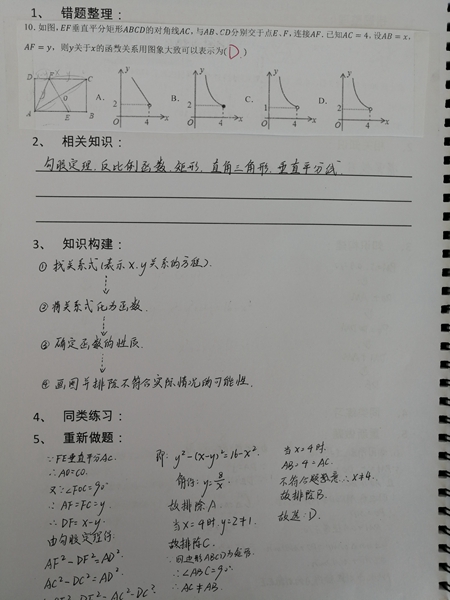 1、 错题整理：
10. 如图，EF垂直平分矩形ABCD的对角线AC，与AB、CD分别交于点E、F，连接AF. 已知AC = 4. 设AB = x，
AF = y，则y关于x的函数关系用图象大致可以表示为( D. )
D F C
O
A E B
A. y 2 O 4 x
B. y 2 O 4 x
C. y 1 O 4 x
D. y 2 O 4 x
2、 相关知识：
勾股定理. 反比例函数. 矩形. 直角三角形. 垂直平分线.
3、 知识构建：
① 找关系式(表示x.y关系的方程).
② 将关系式化为函数.
③ 确定函数的性质.
④ 画图并排除不符合实际情况的可能性.
4、 同类练习：
5、 重新做题：
∵FE垂直平分AC.
∴AO=CO.
又∵∠FOC=90°
∴AF=FC=y
∴DF=x-y.
由勾股定理得:
AF²-DF²=AD².
AC²-DC²=AD².
∴AF²-DF²=AC²-DC².
即: y²-(x-y)²=16-x².
解得: y=8/x.
故排除A.
当x=4时.y=2≠1.
故排除C.
∵四边形ABCD为矩形.
∴∠ABC=90°.
∴AC≠AB.
当x=4时.
AB=4=AC.
不符合题意. ∴x≠4.
故排除B.
故选: D.